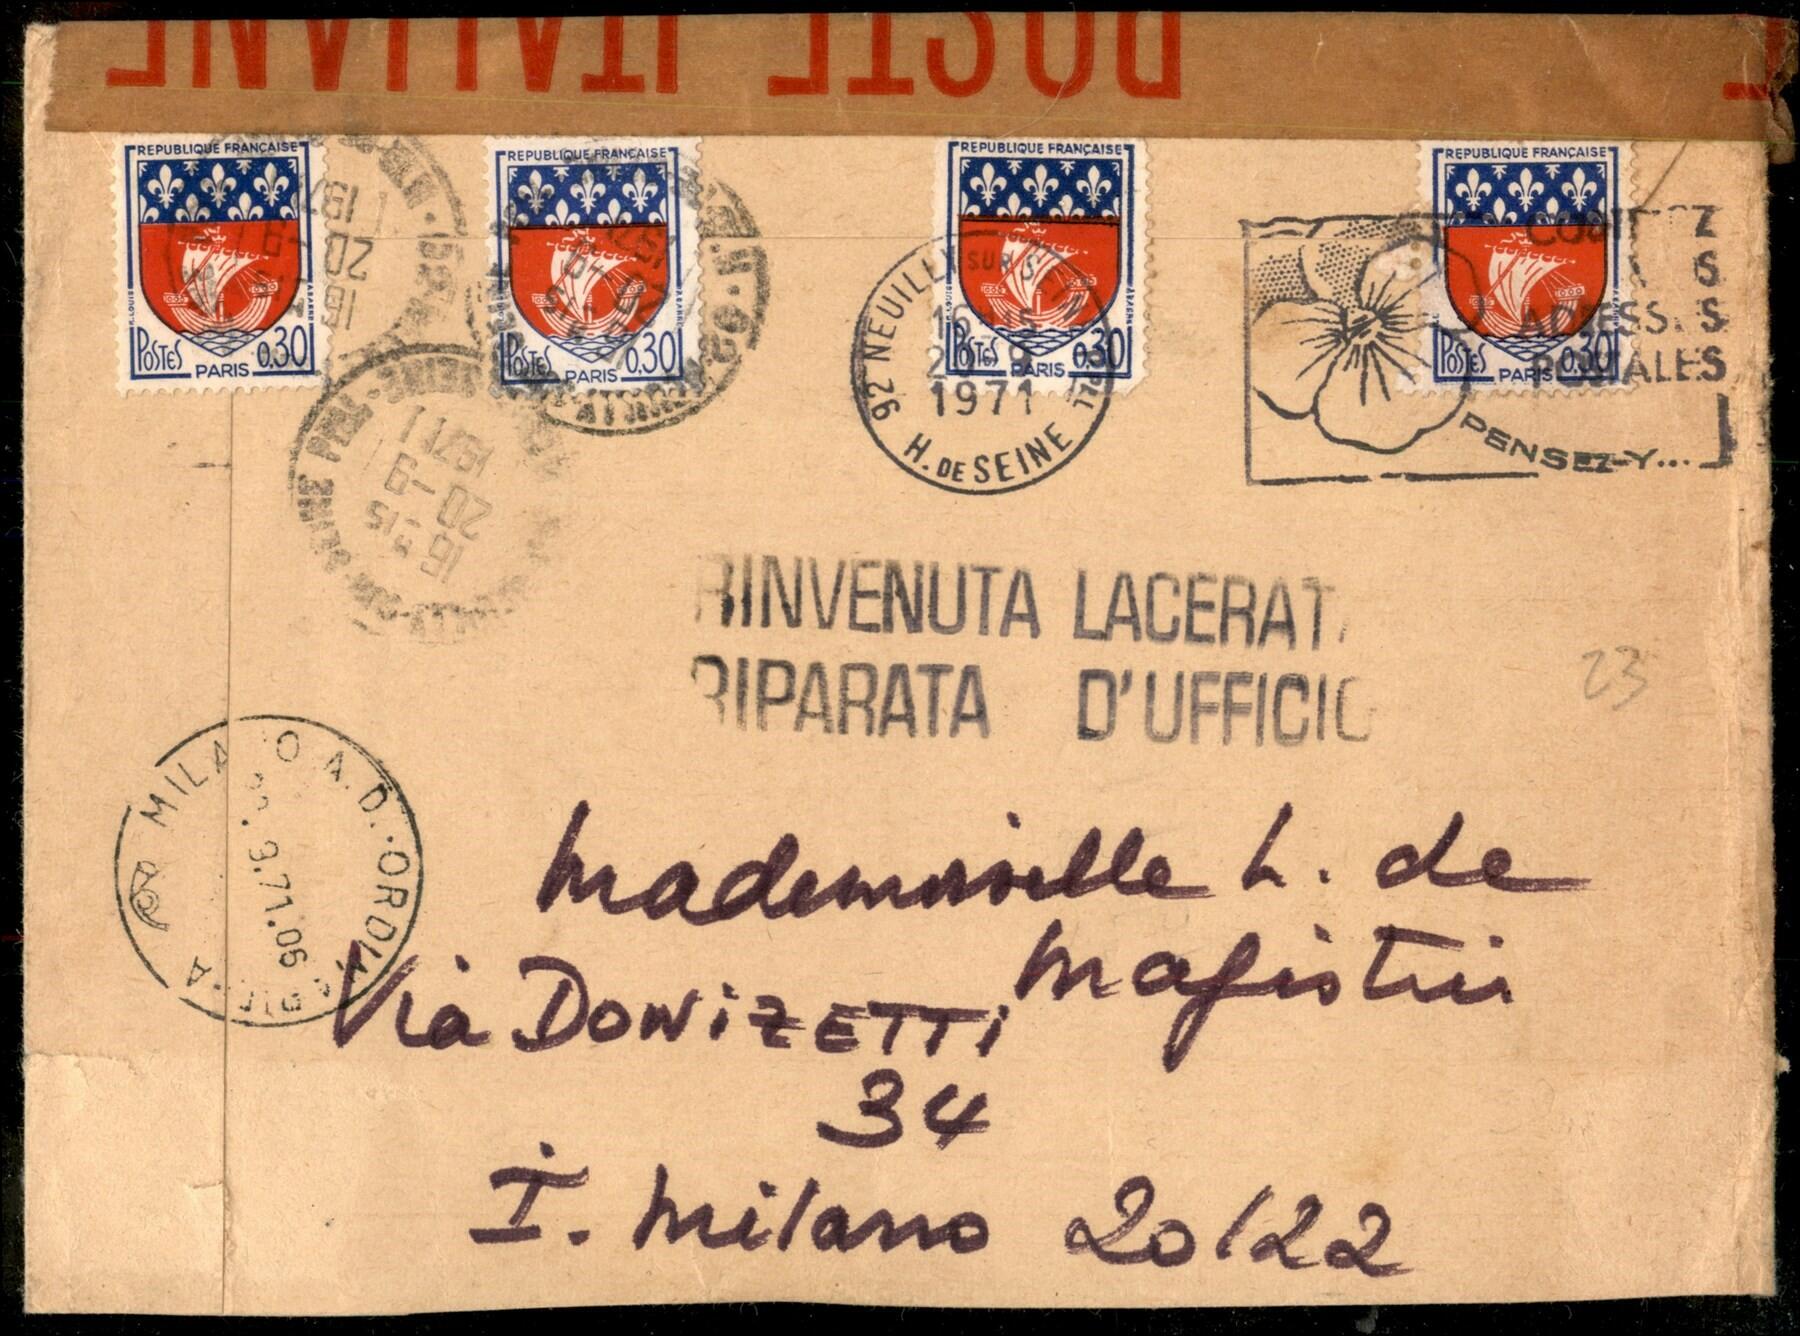 POSTE ITALIANE
REPUBLIQUE FRANÇAISE
POSTES 0.30
PARIS
REPUBLIQUE FRANÇAISE
POSTES 0.30
PARIS
REPUBLIQUE FRANÇAISE
POSTES 0.30
PARIS
REPUBLIQUE FRANÇAISE
POSTES 0.30
PARIS
16 15
20-9
1971
92 NEUILLY SUR SEINE
1971
H. DE SEINE
POSTALES
PENSEZ-Y...
16 H 15
20-9
1971
RINVENUTA LACERAT
RIPARATA D'UFFICIO
23
MILANO A.D. ORDIN
.9.71.09
Mademoiselle L. de
Magistris
Via DONIZETTI
34
I. Milano 20122